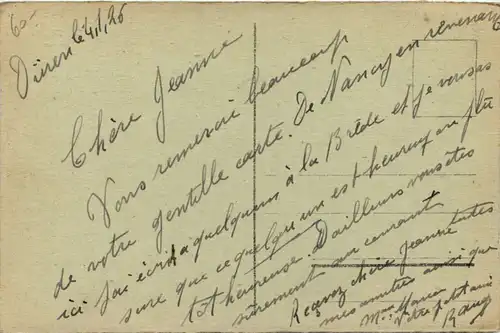 60-
Dieren le 4/1, 26
Chère Jeanne
Vous remercie beaucoup
de votre gentille carte. De Nancy en revenant
ici j'ai écrit à quelqu'un à la Brède et je vous as
sure que ce quelqu'un est heureux ou plu
tot heureuse. D'ailleurs vous êtes
sûrement au courant
Recevez chère Jeanne
mes amitiés ainsi que
votre petit ami